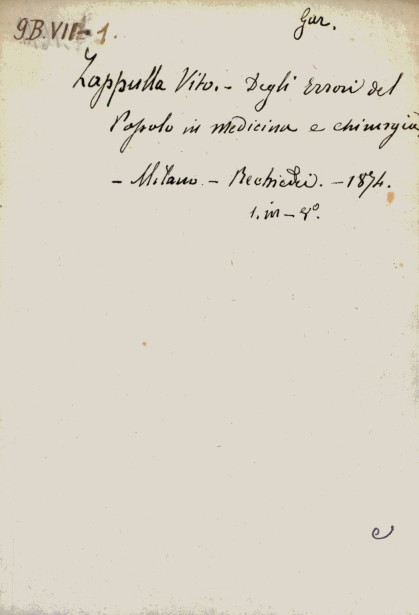 Gar.
9B.VII-1.
Zappulla Vito. - Degli Errori del
Popolo in medicina e chirurgia
- Milano. - Rechiedei. - 1874.
1. in - 8°.